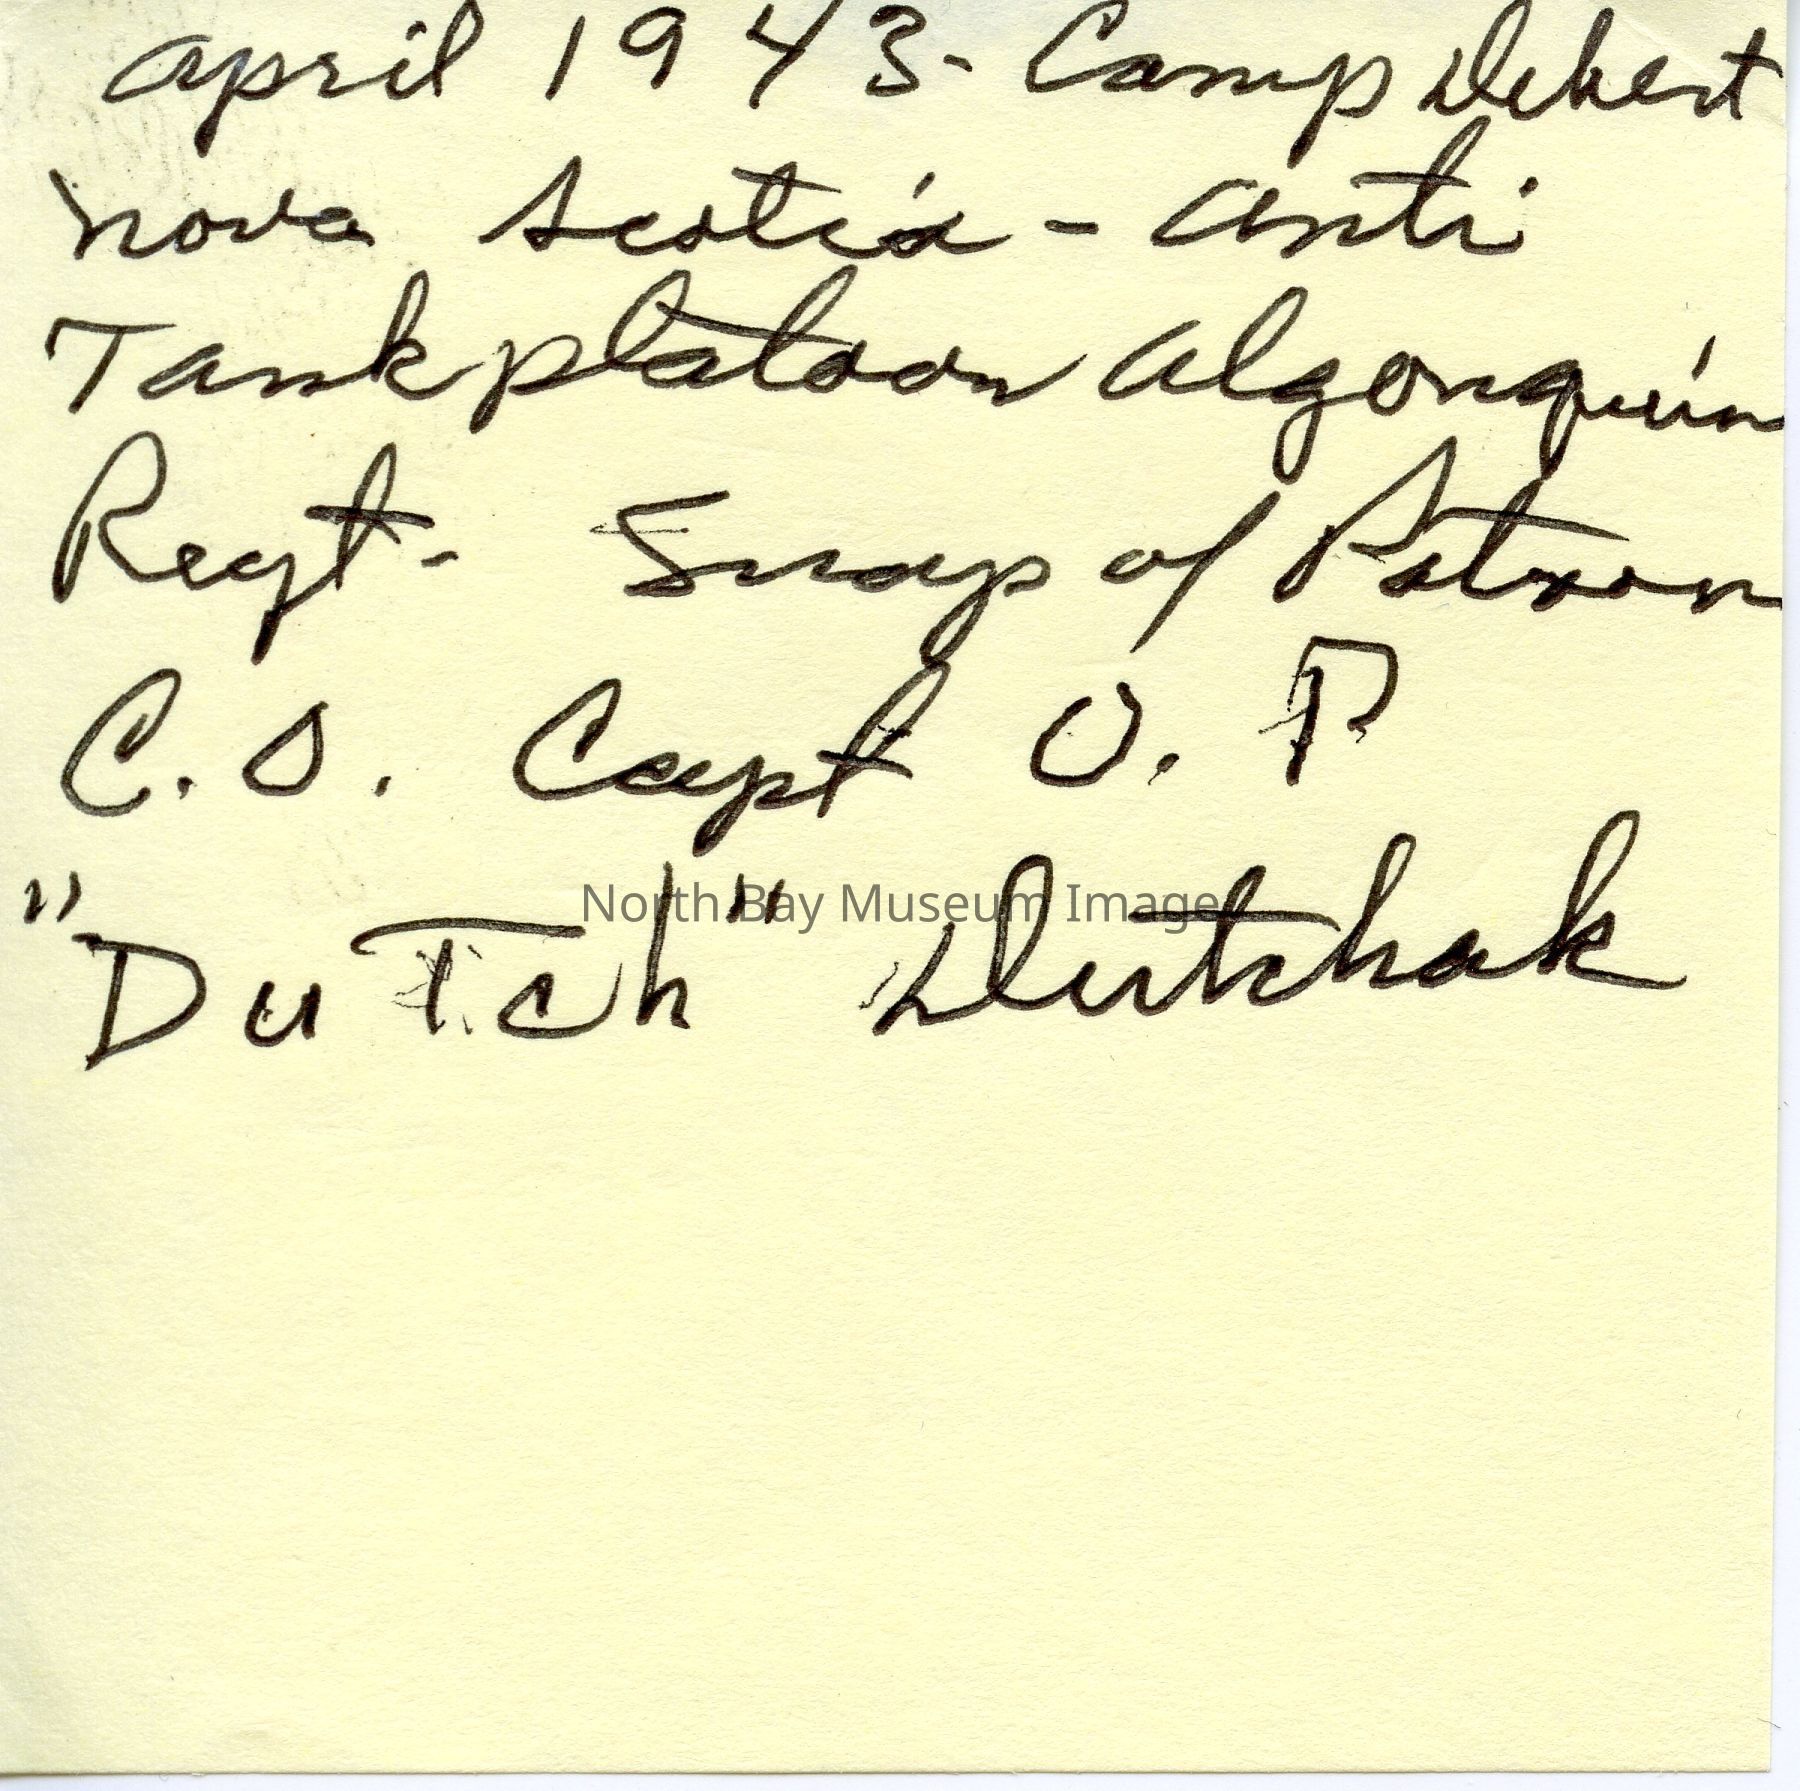 April 1943 - Camp Debert
Nova Scotia - Anti
Tank platoon Algonquin
Regt - Snap of
C.O. Capt O. P
"Dutch" Dutchak
North Bay Museum Image